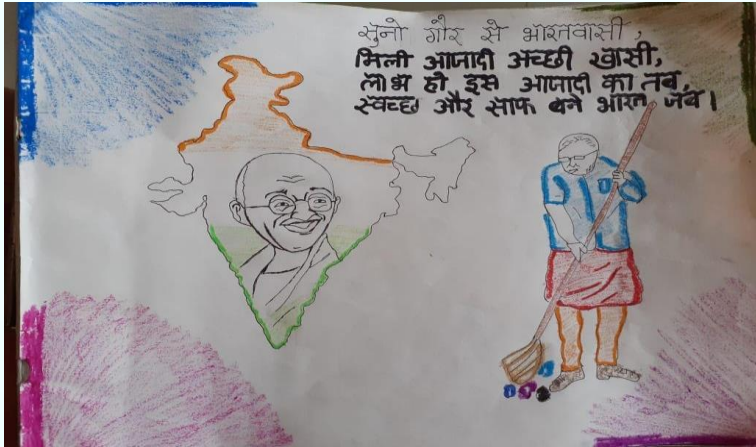 सुनो गौर से भारतवासी,
मिली आजादी अच्छी खासी,
लाभ हो इस आजादी का तब,
स्वच्छ और साफ बने भारत जब।